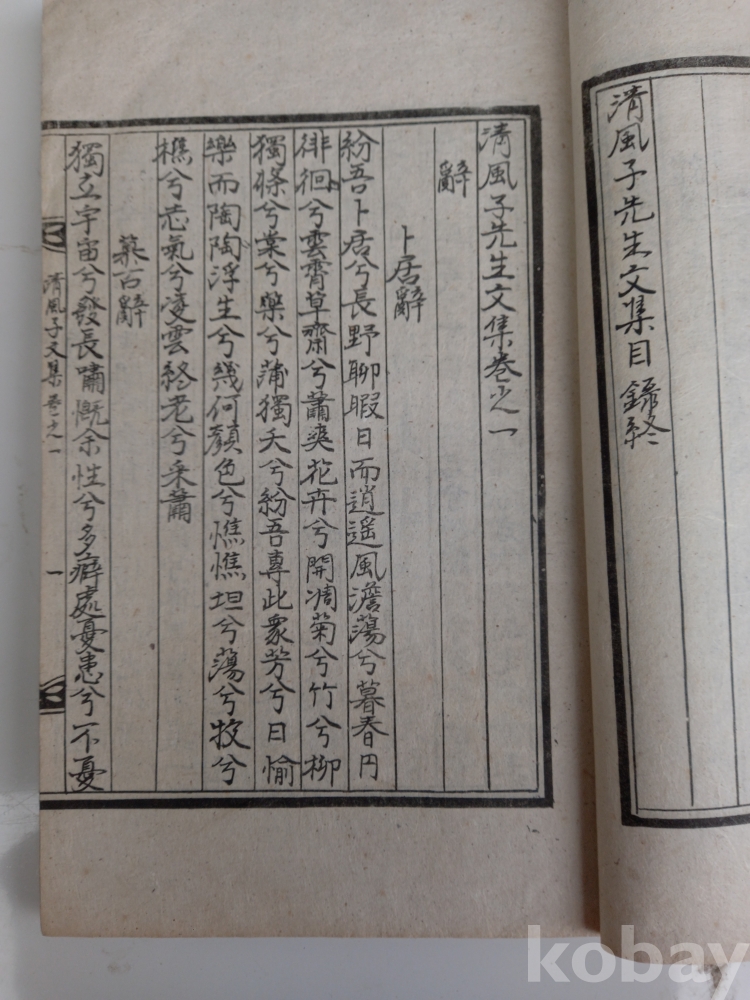 清風子先生文集目錄終
清風子先生文集卷之一
辭
卜居辭
紛吾卜居兮長野聊暇日而逍遥風澹蕩兮暮春円
徘徊兮雲齊草齋兮蕭爽花卉兮開凋菊兮竹兮柳
獨條兮棠兮藥兮蒲獨夭兮紛吾專此衆芳兮日愉
樂而陶陶浮生兮幾何顔色兮憔憔坦兮蕩兮牧兮
樵兮志氣兮凌雲終老兮采蕭
慕古辭
獨立宇宙兮發長嘯慨余性兮多癖處憂患兮不憂
清風子文集 卷之一 一
kobay